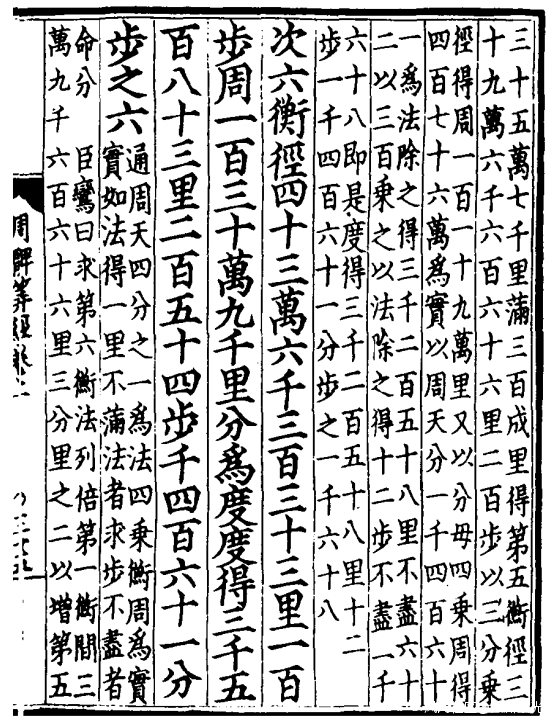 三十五萬七千里滿三百成里得第五衡徑三
十九萬六千六百六十六里二百步以三分乘
徑得周一百一十九萬里又以分母四乘周得
四百七十六萬爲實以周天分一千四百六十
一爲法除之得三千二百五十八里不盡六十
二以三百乘之以法除之得十二步不盡一千
六十八即是度得三千二百五十八里十二
步一千四百六十一分步之一千六十八
次六衡徑四十三萬六千三百三十三里一百
步周一百三十萬九千里分爲度度得三千五
百八十三里二百五十四步千四百六十一分
步之六
通周天四分之一爲法四乘衡周爲實
實如法得一里不滿法者求步不盡者
命分　臣鸞曰求第六衡法列倍第一衡間三
萬九千六百六十六里三分里之二以增第五
周髀算經卷